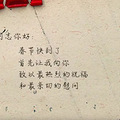 志你好:
春节快到了
首先让我向你
致以最热烈的祝福
和最亲切的慰问